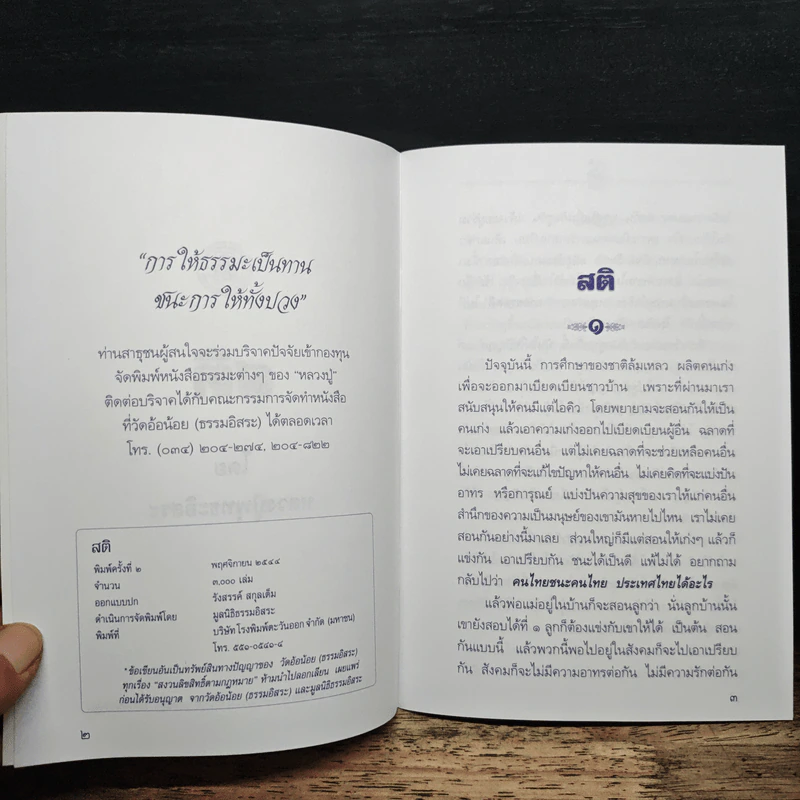 “การให้ธรรมะเป็นทาน
ชนะการให้ทั้งปวง”
ท่านสาธุชนผู้สนใจจะร่วมบริจาคปัจจัยเข้ากองทุน
จัดพิมพ์หนังสือธรรมะต่างๆ ของ “หลวงปู่”
ติดต่อบริจาคได้กับคณะกรรมการจัดทำหนังสือ
ที่วัดอ้อน้อย (ธรรมอิสระ) ได้ตลอดเวลา
โทร. (๐๓๔) ๒๐๔-๒๗๔, ๒๐๔-๘๒๒
สติ
พิมพ์ครั้งที่ ๒ พฤศจิกายน ๒๕๔๔
จำนวน ๓,๐๐๐ เล่ม
ออกแบบปก รังสรรค์ สกุลเต็ม
ดำเนินการจัดพิมพ์โดย มูลนิธิธรรมอิสระ
พิมพ์ที่ บริษัท โรงพิมพ์ตะวันออก จำกัด (มหาชน)
โทร. ๕๕๑-๐๕๔๑-๔
“ข้อเขียนอันเป็นทรัพย์สินทางปัญญาของ วัดอ้อน้อย (ธรรมอิสระ)
ทุกเรื่อง “สงวนลิขสิทธิ์ตามกฎหมาย” ห้ามนำไปลอกเลียน เผยแพร่
ก่อนได้รับอนุญาต จากวัดอ้อน้อย (ธรรมอิสระ) และมูลนิธิธรรมอิสระ
๒
สติ
๑
ปัจจุบันนี้ การศึกษาของชาติล้มเหลว ผลิตคนเก่ง
เพื่อจะออกมาเบียดเบียนชาวบ้าน เพราะที่ผ่านมาเรา
สนับสนุนให้คนมีแต่ไอคิว โดยพยายามจะสอนกันให้เป็น
คนเก่ง แล้วเอาความเก่งออกไปเบียดเบียนผู้อื่น ฉลาดที่
จะเอาเปรียบคนอื่น แต่ไม่เคยฉลาดที่จะช่วยเหลือคนอื่น
ไม่เคยฉลาดที่จะแก้ไขปัญหาให้คนอื่น ไม่เคยคิดที่จะแบ่งปัน
อาทร หรือการุณย์ แบ่งปันความสุขของเราให้แก่คนอื่น
สำนึกของความเป็นมนุษย์ของเขามันหายไปไหน เราไม่เคย
สอนกันอย่างนี้มาเลย ส่วนใหญ่ก็มีแต่สอนให้เก่งๆ แล้วก็
แข่งกัน เอาเปรียบกัน ชนะได้เป็นดี แพ้ไม่ได้ อยากถาม
กลับไปว่า คนไทยชนะคนไทย ประเทศไทยได้อะไร
แล้วพ่อแม่อยู่ในบ้านก็จะสอนลูกว่า นั่นลูกบ้านนั้น
เขายังสอบได้ที่ ๑ ลูกก็ต้องแข่งกับเขาให้ได้ เป็นต้น สอน
กันแบบนี้ แล้วพวกนี้พอไปอยู่ในสังคมก็จะไปเอาเปรียบ
กัน สังคมก็จะไม่มีความอาทรต่อกัน ไม่มีความรักต่อกัน
๓